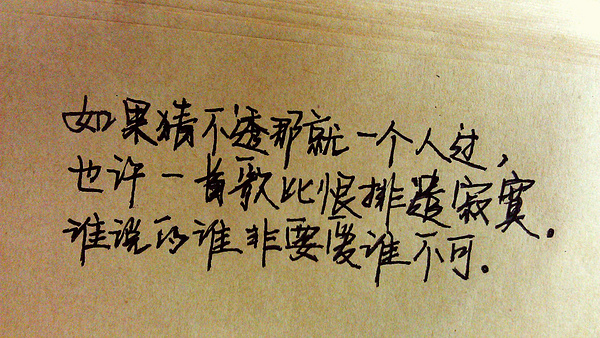 如果猜不透那就一个人过，
也许一首歌比恨排遣寂寞.
谁说的谁非要爱谁不可.